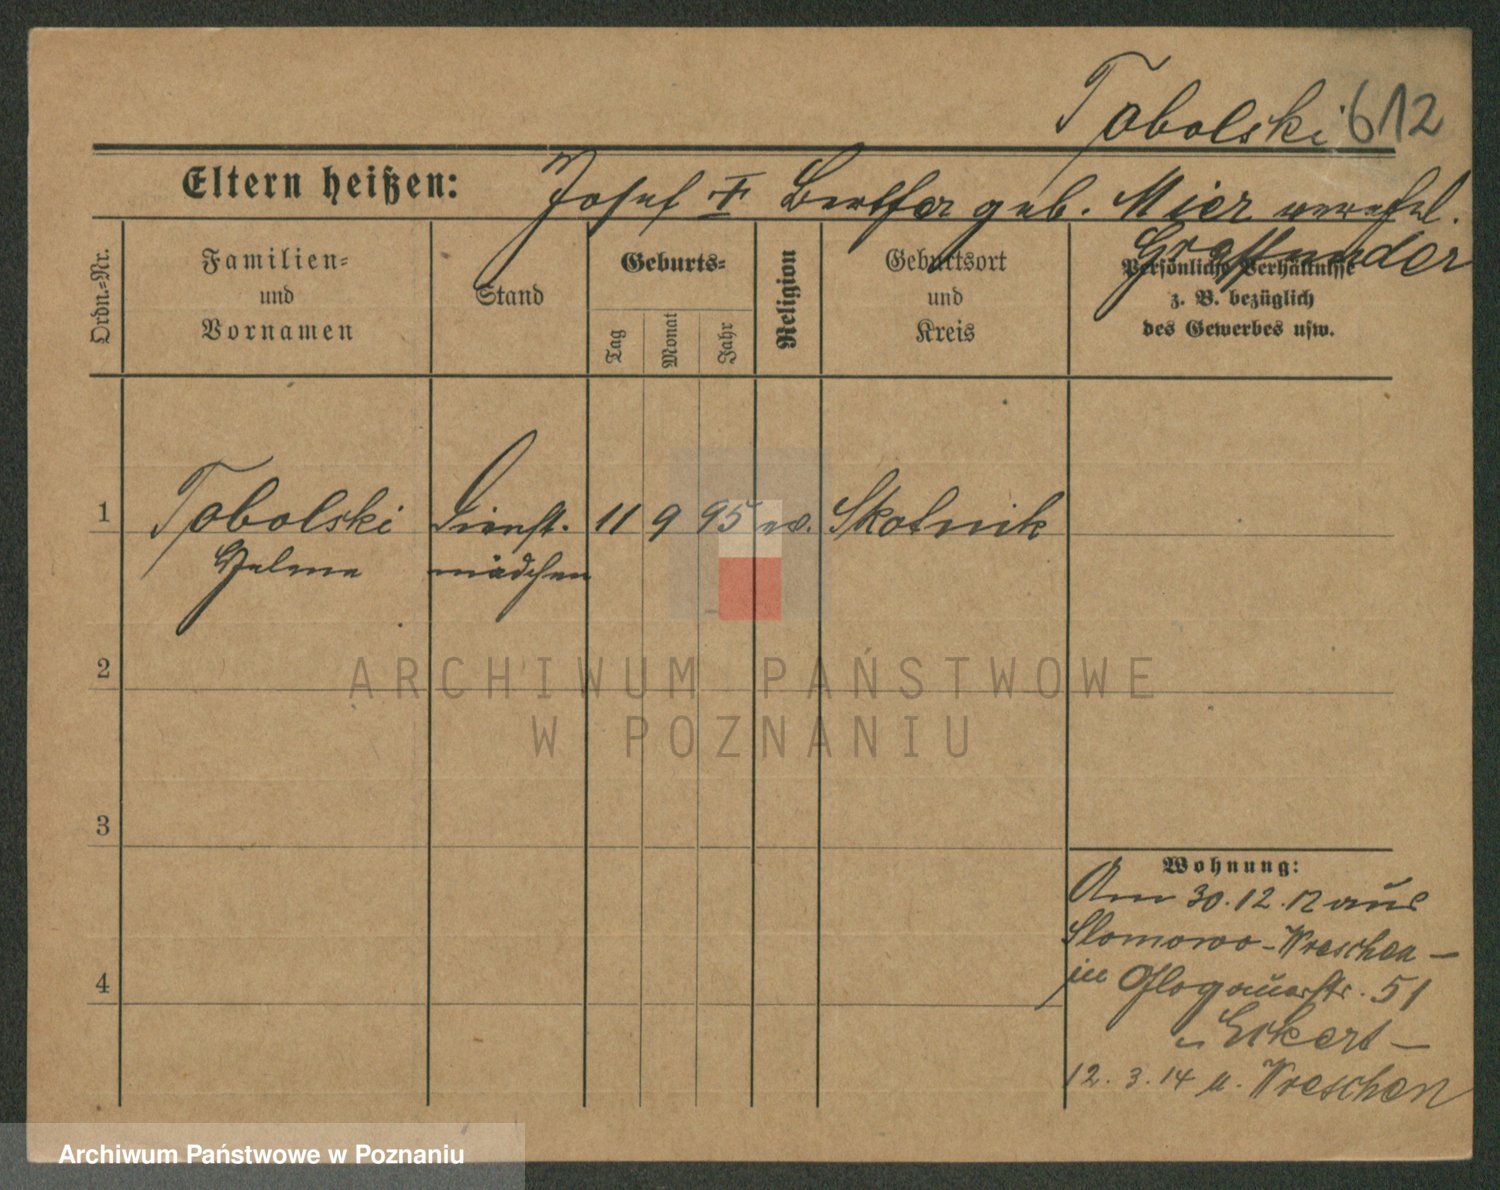 Tobolski 612
Eltern heißen: Josef † Bertha geb. Mier verehel.
Graffunder
Ordn.-Nr.
Familien-
und
Vornamen
Stand
Geburts-
Tag
Monat
Jahr
Religion
Geburtsort
und
Kreis
Persönliche Verhältnisse
z. B. bezüglich
des Gewerbes usw.
1 Tobolski Dienst- 11 9 95 ev. Skotnik
Helene mädchen
2
ARCHIWUM PAŃSTWOWE
W POZNANIU
3
4
Wohnung:
Am 30.12.12 aus
Slomowo - Wreschen -
in Glogauerstr. 51
Eckert -
12.3.14 n. Wreschen
Archiwum Państwowe w Poznaniu